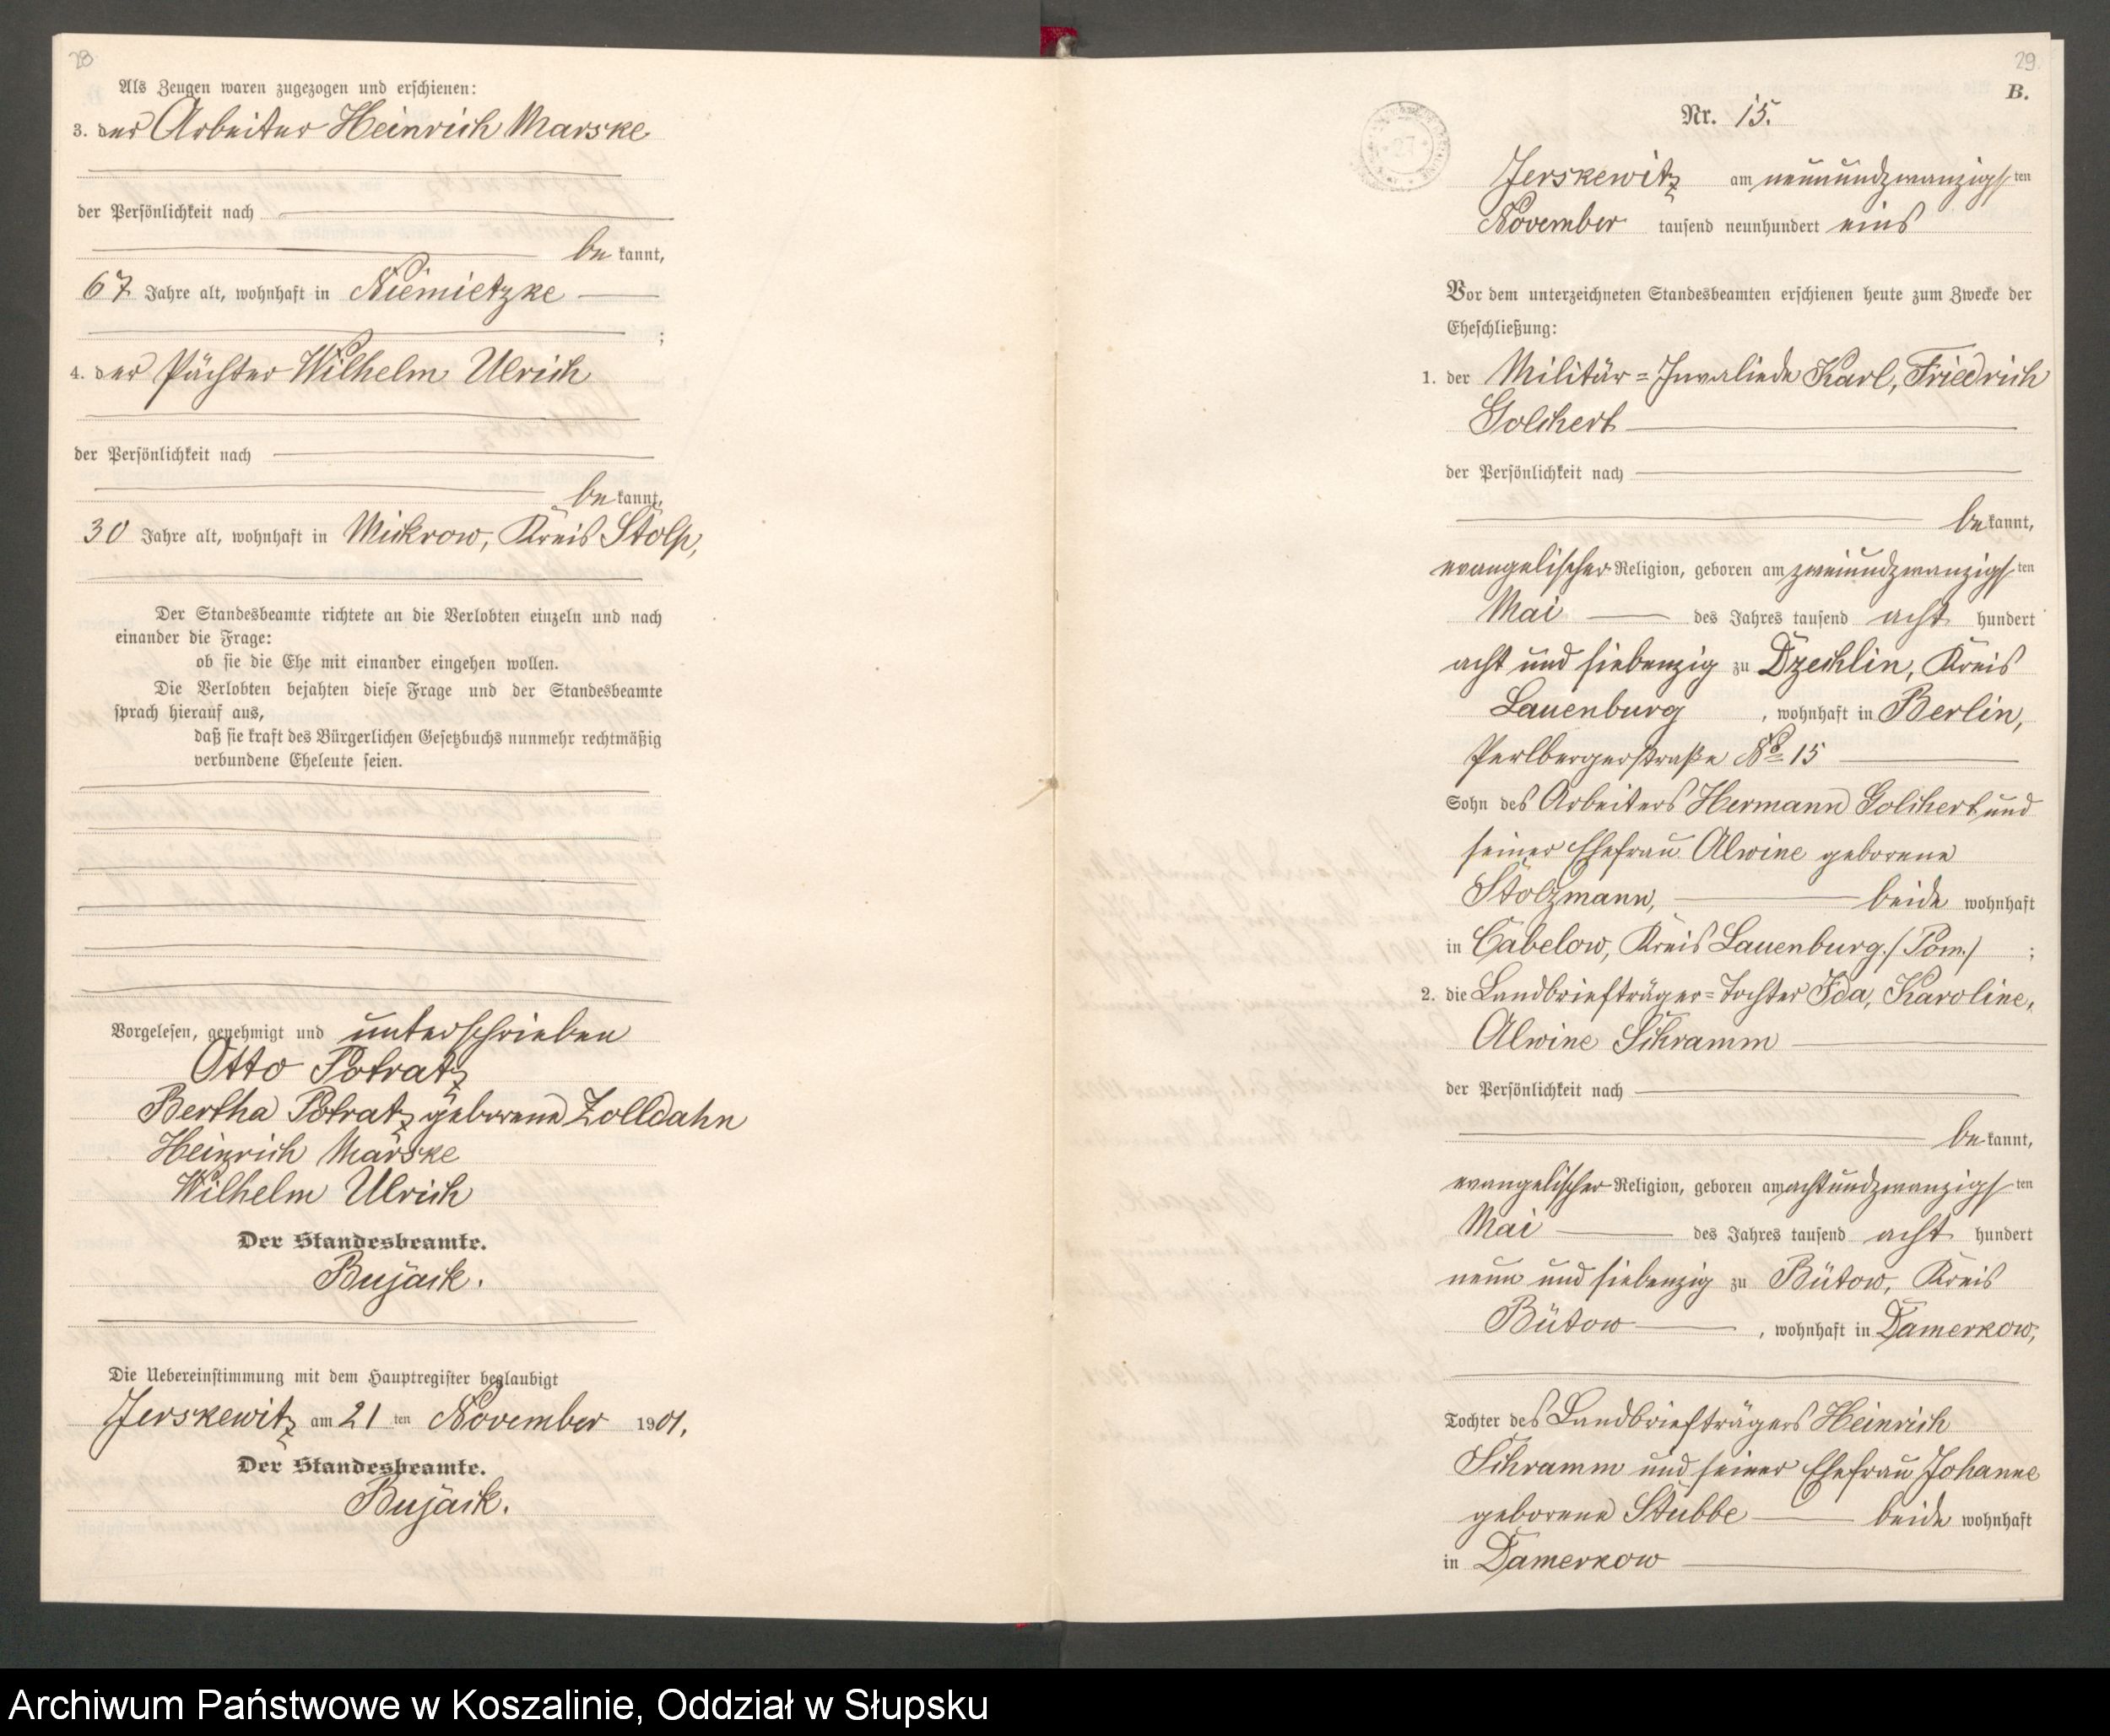 28
Als Zeugen waren zugezogen und erschienen:
3. der Arbeiter Heinrich Marske
der Persönlichkeit nach
be kannt,
67 Jahre alt, wohnhaft in Niemietzke
;
4. der Pächter Wilhelm Ulrich
der Persönlichkeit nach
be kannt,
30 Jahre alt, wohnhaft in Mickrow, Kreis Stolp,
Der Standesbeamte richtete an die Verlobten einzeln und nach
einander die Frage:
ob sie die Ehe mit einander eingehen wollen.
Die Verlobten bejahten diese Frage und der Standesbeamte
sprach hierauf aus,
daß sie kraft des Bürgerlichen Gesetzbuchs nunmehr rechtmäßig
verbundene Eheleute seien.
Vorgelesen, genehmigt und unterschrieben
Otto Potratz
Bertha Potratz geborene Zolldahn
Heinrich Marske
Wilhelm Ulrich
Der Standesbeamte.
Bujack.
Die Uebereinstimmung mit dem Hauptregister beglaubigt
Jerskewitz am 21 ten November 1901.
Der Standesbeamte.
Bujack.
29
B.
Nr. 15.
27
Jerskewitz am neunundzwanzigsten
November tausend neunhundert eins
Vor dem unterzeichneten Standesbeamten erschienen heute zum Zwecke der
Eheschließung:
1. der Militär=Invaliede Karl, Friedrich
Golchert
der Persönlichkeit nach
be kannt,
evangelischer Religion, geboren am zweiundzwanzigsten
Mai des Jahres tausend acht hundert
acht und siebenzig zu Dzechlin, Kreis
Lauenburg, wohnhaft in Berlin,
Perlbergerstraße No 15
Sohn des Arbeiters Hermann Golchert und
seiner Ehefrau Alwine geborene
Stolzmann, beide wohnhaft
in Cabelow, Kreis Lauenburg./Pom./ ;
2. die Landbriefträger=Tochter Ida, Karoline,
Alwine Schramm
der Persönlichkeit nach
be kannt,
evangelischer Religion, geboren am achtundzwanzigsten
Mai des Jahres tausend acht hundert
neun und siebenzig zu Bütow, Kreis
Bütow, wohnhaft in Damerkow,
Tochter des Landbriefträgers Heinrich
Schramm und seiner Ehefrau Johanne
geborene Stubbe beide wohnhaft
in Damerkow
Archiwum Państwowe w Koszalinie, Oddział w Słupsku